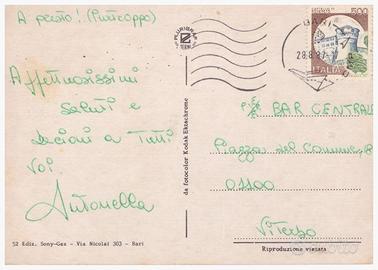 A presto! (Purtroppo)
Affettuosissimi
saluti e
bacioni a Tutti
Voi
Antonella
52 Ediz. Sony-Gex - Via Nicolai 303 - Bari
da fotocolor Kodak Ektachrome
PLURIGRAF
TERNI
BARI
28.8.
500
ITALIA
BAR CENTRALE
Piazza del Comune, 8
01100
Viterbo
Riproduzione vietata
subito